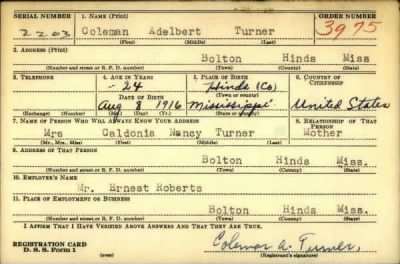 SERIAL NUMBER 1. NAME (Print) ORDER NUMBER
2203 Coleman Adelbert Turner 3975
(First) (Middle) (Last)
2. ADDRESS (Print)
Bolton Hinds Miss
(Number and street or R. F. D. number) (Town) (County) (State)
3. TELEPHONE 4. AGE IN YEARS 5. PLACE OF BIRTH 6. COUNTRY OF CITIZENSHIP
24 Hinds (Co)
DATE OF BIRTH (Town or county)
Aug 8 1916 Mississippi United States
(Exchange) (Number) (Mo.) (Day) (Yr.) (State or country)
7. NAME OF PERSON WHO WILL ALWAYS KNOW YOUR ADDRESS 8. RELATIONSHIP OF THAT PERSON
Mrs Caldonia Nancy Turner Mother
(Mr., Mrs., Miss) (First) (Middle) (Last)
9. ADDRESS OF THAT PERSON
Bolton Hinds Miss.
(Number and street or R. F. D. number) (Town) (County) (State)
10. EMPLOYER'S NAME
Mr. Ernest Roberts
11. PLACE OF EMPLOYMENT OR BUSINESS
Bolton Hinds Miss.
(Number and street or R. F. D. number) (Town) (County) (State)
I AFFIRM THAT I HAVE VERIFIED ABOVE ANSWERS AND THAT THEY ARE TRUE.
REGISTRATION CARD
D. S. S. Form 1 (over) Coleman A. Turner
(Registrant's signature)